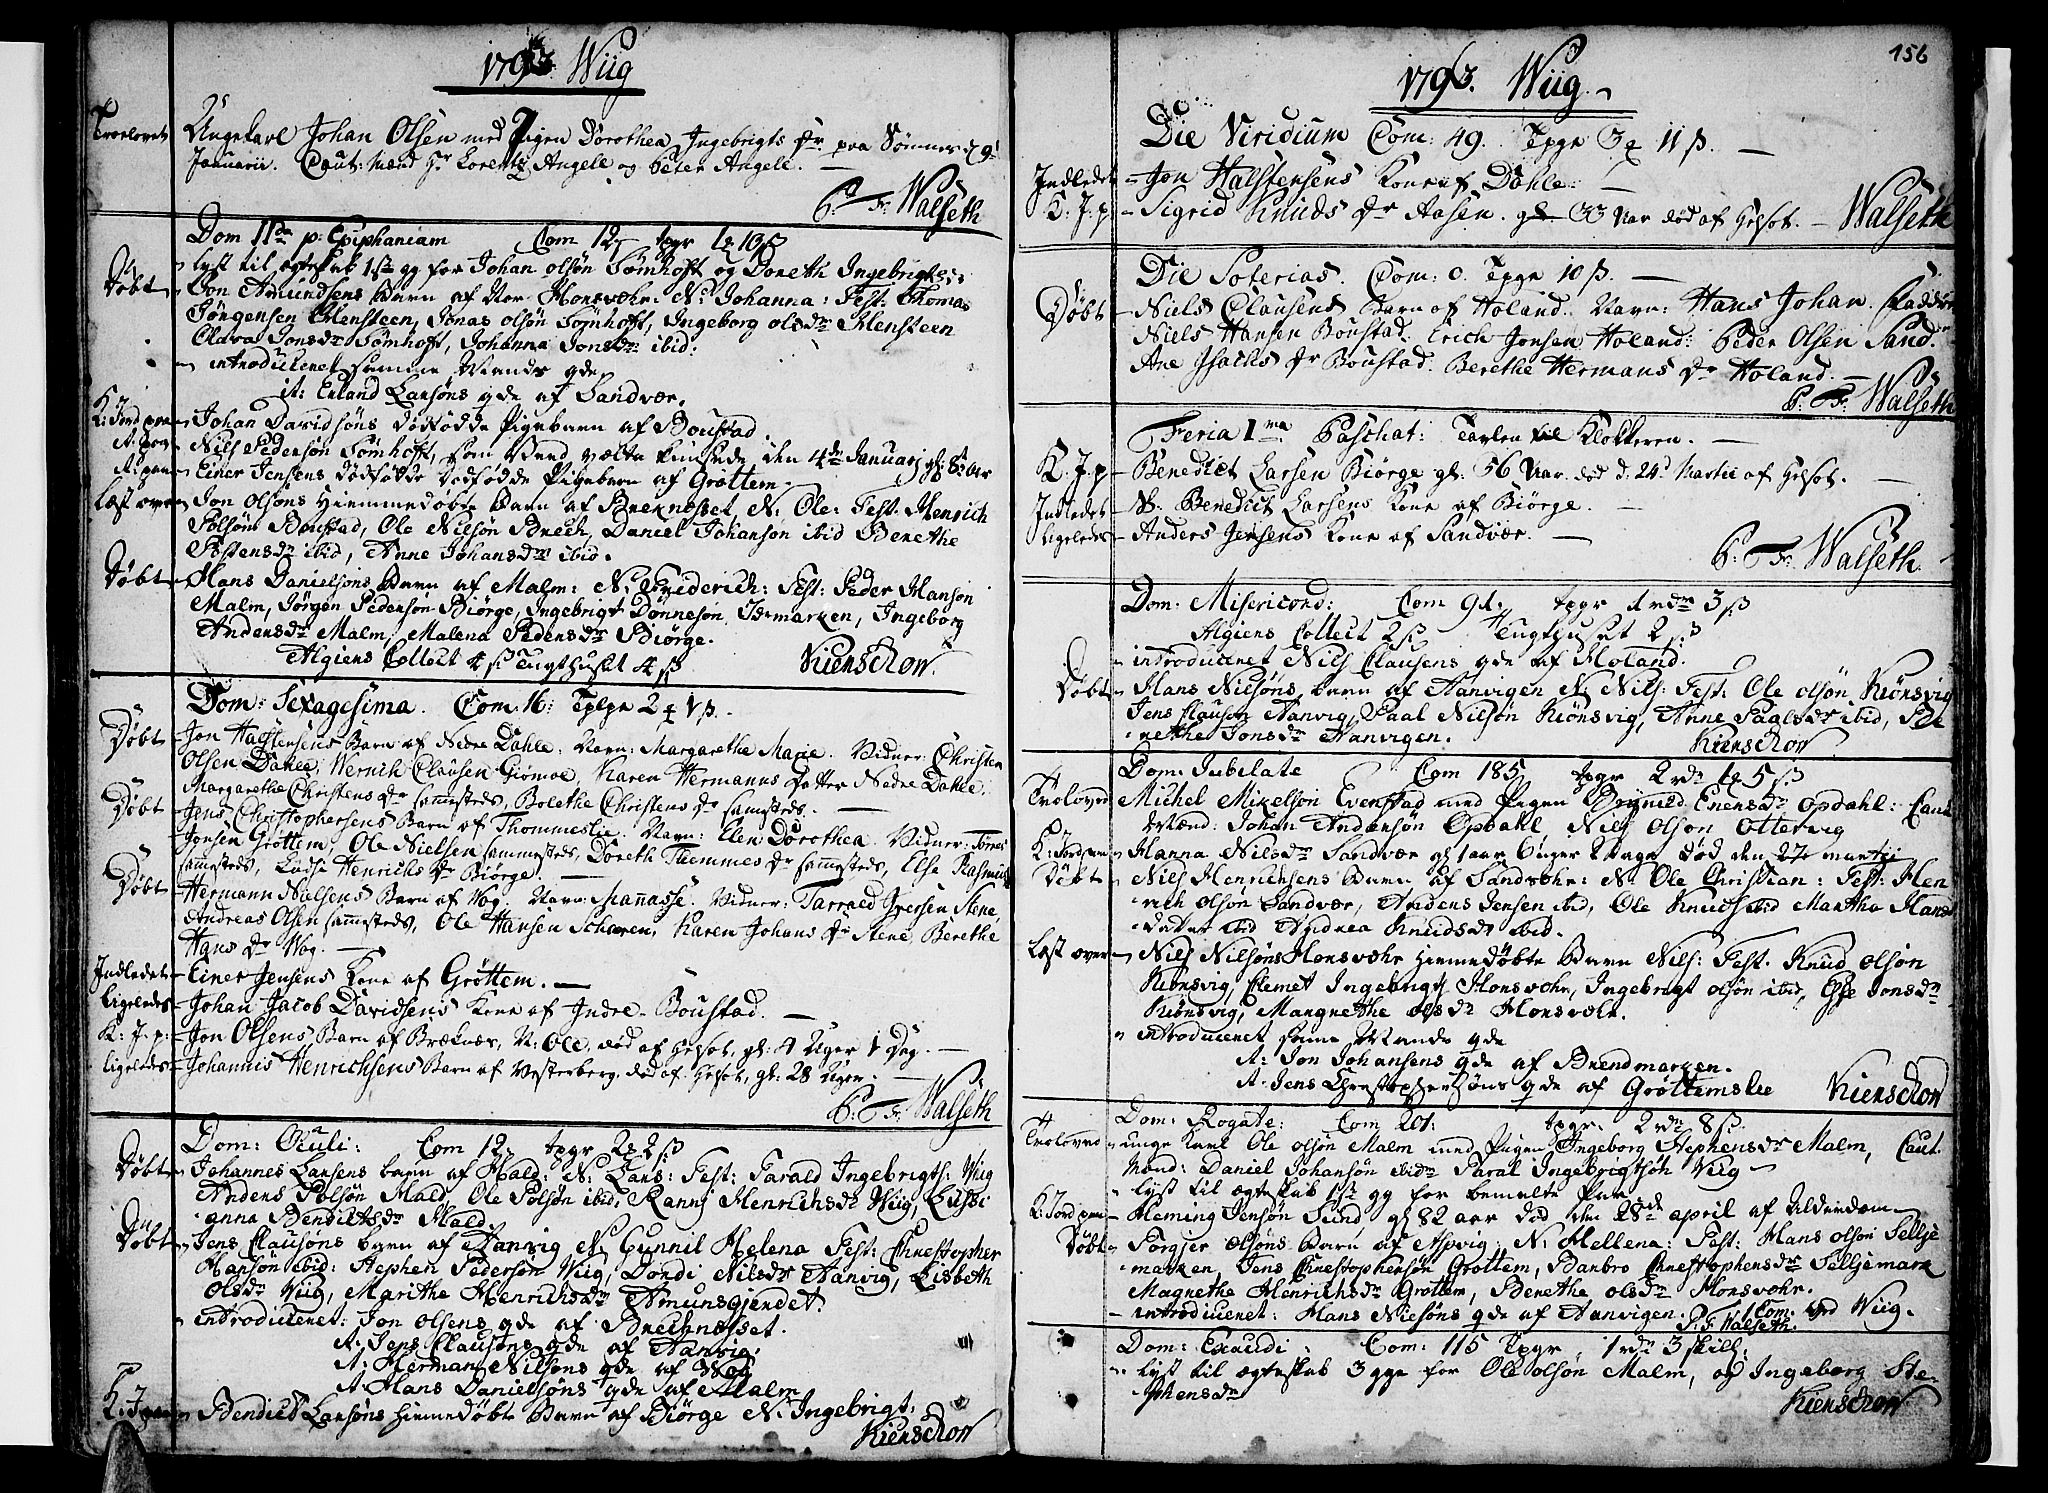 1793 Wiig
Troelovet Ungekarl Johan Olsen med Pigen Dorothea Ingebrigts Dr paa Sömnes d 9d
Januarii. Caut: Mænd Hr Lorentz Angell og Peter Angell.
P: Fr. Walseth
Dom IIda p: Epiphaniam Com 12, tpgr 1 10 ß
Lyst til ægteskab 1ste gg for Johan olsön Sömhofft og Doreth Ingebrigtsdr
Döbt Jon Amundsens Barn af Nor Horsvohr N: Johanna: Test: Thomas
Jörgensen Hensteen, Jonas olsön Sömhofft, Ingeborg olsdr Hensteen
Clara Jonsdr Sömhoft, Johanna Jonsdr ibid:
introduceret samme Mands qde
it: Erland Larsöns qde af Sandvær.
K: Jord paa Johan Davidsöns dödfödde Pigebarn af Boustad
It: paa Nils Pedersön Sömhofft, som Vend vælte künsede den 4de Januarj gl: 83 aar
It: paa Einer Jensens dödfödde Pigebarn af Gröttem
Læst over Jon Olsöns Hiemmedöbte Barn af Breknesset N: Ole: Test: Henrich
Polsön Boustad, Ole Nilsön Brech, Daniel Johansön ibid Berethe
Postensdr ibid, Anne Johansdr ibid.
Döbt Hans Danielsöns Barn af Malm: N: Friderich: Test: Peder Hansön
Malm, Jörgen Pedersön Biörge, Ingebrigt Dönnesön Jermarken, Ingeborg
Andersdr Malm, Malena Pedersdr Biörge.
Algiers Collect 4 ß Tugthuset 4 ß Kierschow.
Dom: Sexagesima. Com. 16: Tpgr 2 1 ß.
Döbt Jon Halstensens Barn af Nedre Dahle. Navn: Margarethe Marie. Vidner: Christen
Olsen Dahle, Wernich Clausen Giömoe, Karen Hermanns Datter Nedre Dahle.
Margarethe Christens Dr sammesteds, Bolethe Christens Dr sammesteds.
Döbt Jens Christophersens Barn af Thommeslie. Navn: Elen Dorothea. Vidner: Tönnes
Jonsen Gröttem, Ole Nielsen sammesteds, Doreth Flemmes Dr sammesteds, Else Rasmus
sammesteds, Ludsi Henrichs Dr Biörge.
Döbt Hermann Nielsens Barn af Wog. Navn: Manasse. Vidner: Tarrald Iversen Stene,
Andreas Olsen sammesteds, Ole Hansen Scharen, Karen Johans Dr Stene, Berethe
Hans Dr Wog.
Indledet Einer Jensens Kone af Gröttem.
Ligeledes Johan Jacob Davidsens Kone af Indre-Boustad.
K: J: p: Jon Olsens Barn af Brækvær, N: Ole, död af Helsot, gl: 4 Uger 1 Dag.
ligeledes Johannis Henrichsens Barn af Vesterberg, död af Helsot, gl: 28 Uger.
P: Fr. Walseth
Dom: Oculi: Com 12, tpgr 2 2 ß
Döbt Johannes Larsens barn af Hald: N: Lars: Test: Tarald Ingebrigts: Wiig
Anders Polsön Hald, Ole Polsön ibid, Ranni Henrichsdr Wiig, Lussi
anna Bendictsdr Hald
Döbt Jens Clausöns barn af Aanvig N: Gunnil Helena Test: Christopher
Hansön ibid: Stephen Pedersön Wiig, Dordi Nilsdr Aanvig, Lisbeth
Olsdr Wiig, Marithe Henrichsdr Amunsgierdet.
introduceret: Jon olsens qde af Brechnesset.
It: Jens Clausöns qde af Aanvig.
It: Herman Nilsöns qde af Wog
It: Hans Danielsöns qde af Malm
K: J paa Bendict Larsöns hiemedöbte Barn af Biörge N: Ingebrigt:
Kierschow
156
1793. Wiig.
Die Viridium Com: 49. Tpgr 3 11 ß.
Indledet Jon Halstensens Kone af Dahle.
K: J. p Sigrid Knuds Dr Aasen. gl 33 Aar död af Helsot. Walseth
Die Soterias. Com: 0. Tpgr 10 ß.
Döbt Niels Clausens Barn af Holand. Navn: Hans Johan. Faddere
Niels Hansen Boustad. Erich Jonsen Holand: Peder Olsen Sand.
Ane Isachs Dr Boustad. Berethe Hermans Dr Holand.
P: Fr. Walseth
Feria 1ma Paschat: Tavlen til Klokkeren.
K. J. p Benedict Larsen Biörge gl: 56 Aar död d. 24d Martii af Helsot.
Indledet Benedict Larsens Kone af Biörge.
Ligeledes Anders Jensens Kone af Sandvær.
P: Fr. Walseth.
Dom: Misericord: Com 91, tpgr 1 rdr 3 ß
Algiers Collect 2 ß Tugthuset 2 ß
introduceret Nils Clausens qde af Holand.
Döbt Hans Nilsöns barn af Aanvigen N: Nils: Test: Ole olsön Kiönsvig
Jens Clausen Aanvig, Paal Nilsön Kiönsvig, Anne Paalsdr ibid, Be
rethe Jonsdr Aanvigen. Kierschow
Dom: Jubilate Com 185, tpgr 2 rdr 1 5 ß
Troloved Michel Mikelsön Evenstad med Pigen Beryned Enersdr Opdahl: Caut
Mænd: Johan Andersön Opdahl, Nils Olsön Ottervig
K: Jord paa Hanna Nilsdr Sandvær gl 1 aar 6 uger 2 dage död den 27 martii
Döbt Nils Henrichsens Barn af Sandvohr: N: Ole Christian: Test: Hen
rich olsön Sandvær, Anders Jensen ibid, Ole Knuds ibid Martha Hans
datter ibid Andrea Knudsdr ibid.
Læst over Nils Nilsöns Horsvohr hiemedöbte Barn Nils: Test. Knud olsön
Kiönsvig, Clemet Ingebrigts Horsvohr, Ingebrigt olsön ibid, Else Jonsdr
Kiönsvig, Margrethe olsdr Horsvohr.
introduceret samme Mands qde
It: Jon Johansens qde af Brendmarken.
It: Jens Christophersöns qde af Gröttemslie Kierschow
Dom: Rogate: Com 201. tpgr. 2 rdr 8 ß.
Troloved unge Karl Ole olsön Malm med Pigen Ingeborg Stephensdr Malm, Caut.
Mænd: Daniel Johansön ibidm Taral Ingebrigtsön Wiig
Lyst til ægteskab 1ste gg for bemelte Par
K: Jord paa Fleming Jensön Sund, gl 82 aar död den 28de april af Alderdom
Döbt Torgier olsöns Barn af Aspvig: N: Hellena: Test: Hans olsön Seltje
marken, Jens Christophersön Gröttem, Barbro Christophersdr Seltjemark
Magrethe Henrichsdr Grottem, Berethe olsdr Horsvohr.
introduceret: Hans Nilsöns qde af Aanvigen. P: F Walseth. Com: ved Wiig.
Dom: Exaudi: Com: 115 Tpgr 1 rdr 3 skill:
Lyst til ægteskab 3 gge for Ole olsön Malm, og Ingeborg Ste-
phensdr Kierschow